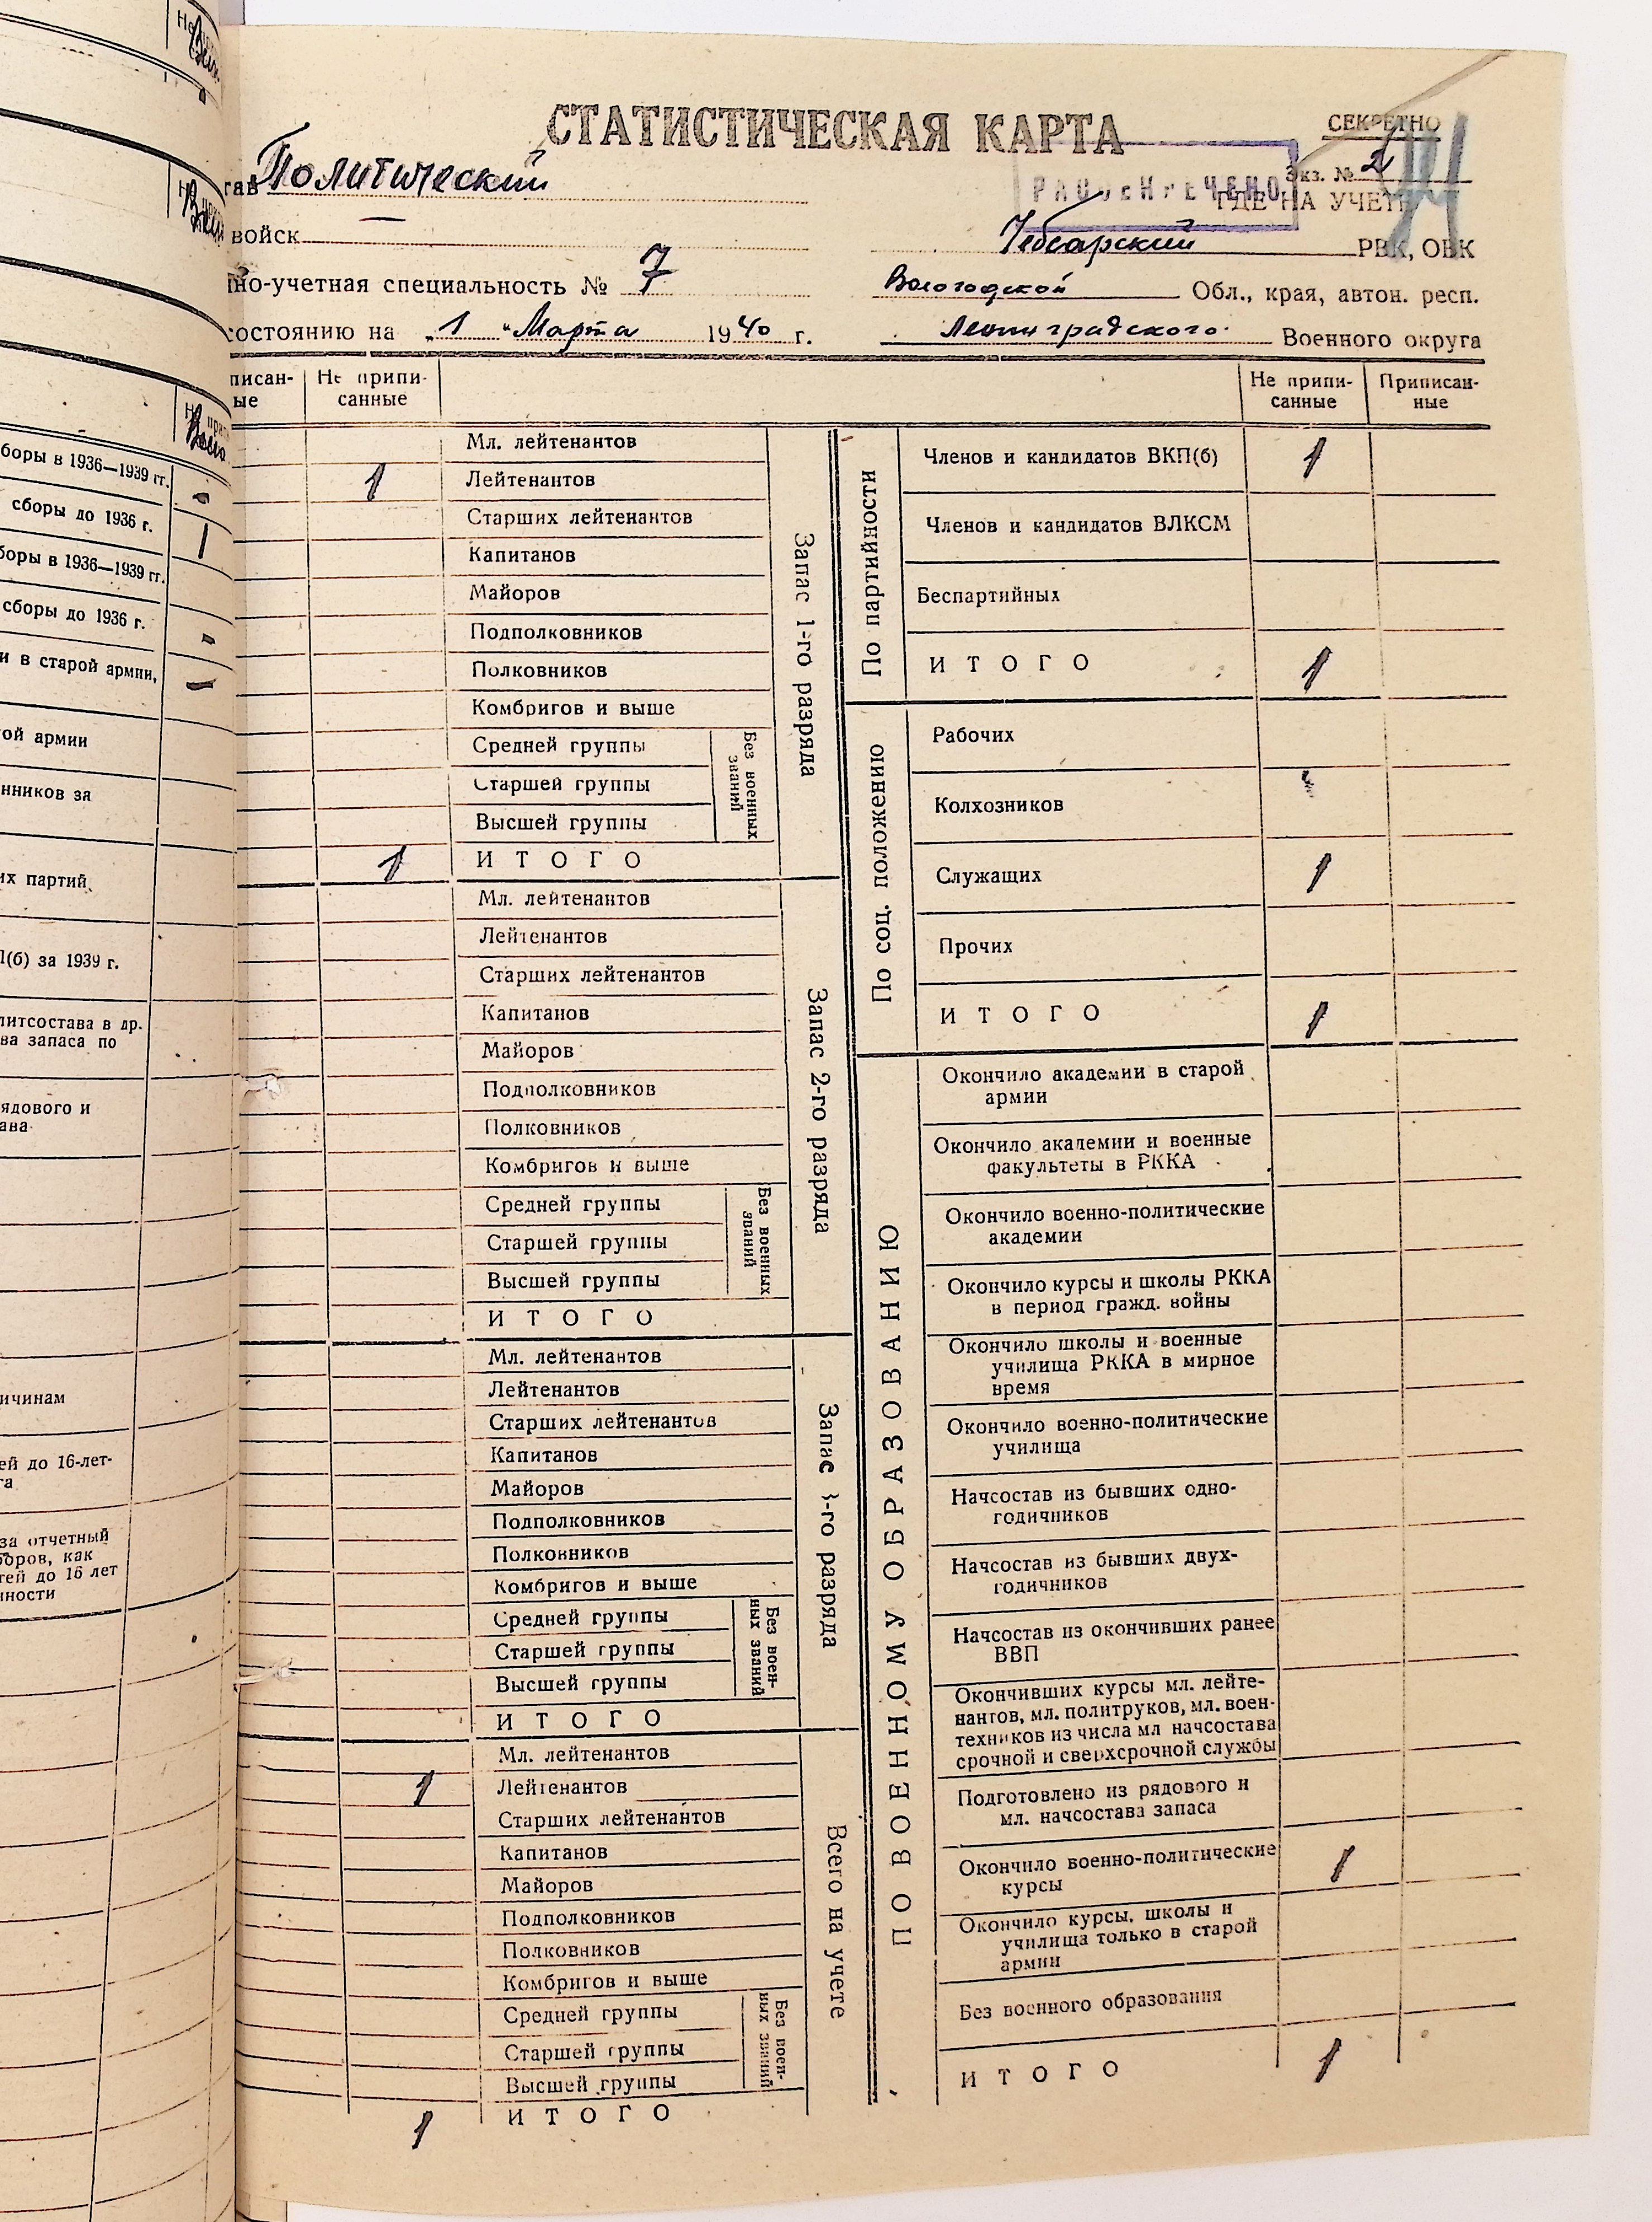 СТАТИСТИЧЕСКАЯ КАРТА
СЕКРЕТНО
Экз. № 2
РАССЕКРЕЧЕНО
тав Политический
ГДЕ НА УЧЕТЕ
войск
Чебсарский РВК, ОВК
но-учетная специальность № 7
Вологодской Обл., края, автон. респ.
состоянию на „1 “ Марта 1940 г.
Ленинградского Военного округа
писан-
ые
Не припи-
санные
Не припи-
санные
Приписан-
ные
Запас 1-го разряда
Мл. лейтенантов
1 Лейтенантов
Старших лейтенантов
Капитанов
Майоров
Подполковников
Полковников
Комбригов и выше
Средней группы
Старшей группы
Высшей группы
Без военных
званий
1 ИТОГО
Запас 2-го разряда
Мл. лейтенантов
Лейтенантов
Старших лейтенантов
Капитанов
Майоров
Подполковников
Полковников
Комбригов и выше
Средней группы
Старшей группы
Высшей группы
Без военных
званий
ИТОГО
Запас 3-го разряда
Мл. лейтенантов
Лейтенантов
Старших лейтенантов
Капитанов
Майоров
Подполковников
Полковников
Комбригов и выше
Средней группы
Старшей группы
Высшей группы
Без воен-
ных званий
ИТОГО
Всего на учете
Мл. лейтенантов
1 Лейтенантов
Старших лейтенантов
Капитанов
Майоров
Подполковников
Полковников
Комбригов и выше
Средней группы
Старшей группы
Высшей группы
Без воен-
ных званий
1 ИТОГО
По партийности
Членов и кандидатов ВКП(б) 1
Членов и кандидатов ВЛКСМ
Беспартийных
ИТОГО 1
По соц. положению
Рабочих
Колхозников
Служащих 1
Прочих
ИТОГО 1
ПО ВОЕННОМУ ОБРАЗОВАНИЮ
Окончило академии в старой
армии
Окончило академии и военные
факультеты в РККА
Окончило военно-политические
академии
Окончило курсы и школы РККА
в период гражд. войны
Окончило школы и военные
училища РККА в мирное
время
Окончило военно-политические
училища
Начсостав из бывших одно-
годичников
Начсостав из бывших двух-
годичников
Начсостав из окончивших ранее
ВВП
Окончивших курсы мл. лейте-
нантов, мл. политруков, мл. воен-
техников из числа мл начсостава
срочной и сверхсрочной службы
Подготовлено из рядового и
мл. начсостава запаса
Окончило военно-политические
курсы 1
Окончило курсы, школы и
училища только в старой
армии
Без военного образования
ИТОГО 1
боры в 1936—1939 гг.
сборы до 1936 г.
боры в 1936—1939 гг.
сборы до 1936 г.
и в старой армии,
ой армии
нников за
их партий
П(б) за 1939 г.
литсостава в др.
ва запаса по
ядового и
ава
ичинам
ей до 16-лет-
та
за отчетный
боров, как
тей до 16 лет
нности